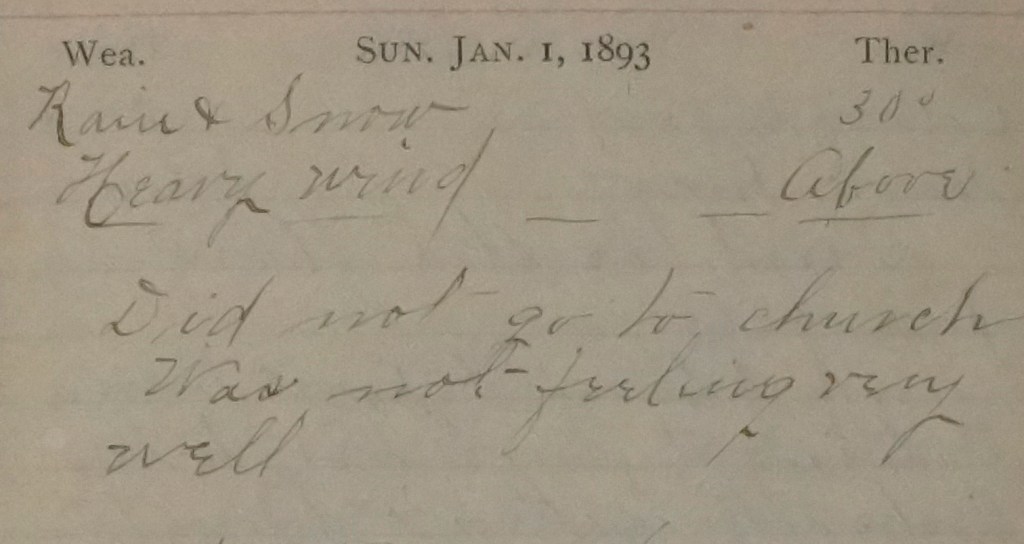 Wea. SUN. JAN. 1, 1893 Ther.
Rain & Snow 30°
Heavy wind — — Above
Did not go to church
Was not feeling very
well